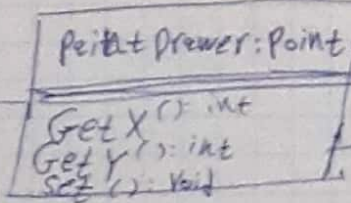 Peint Drawer: Point
Get X (): int
Get Y (): int
Set (): Void